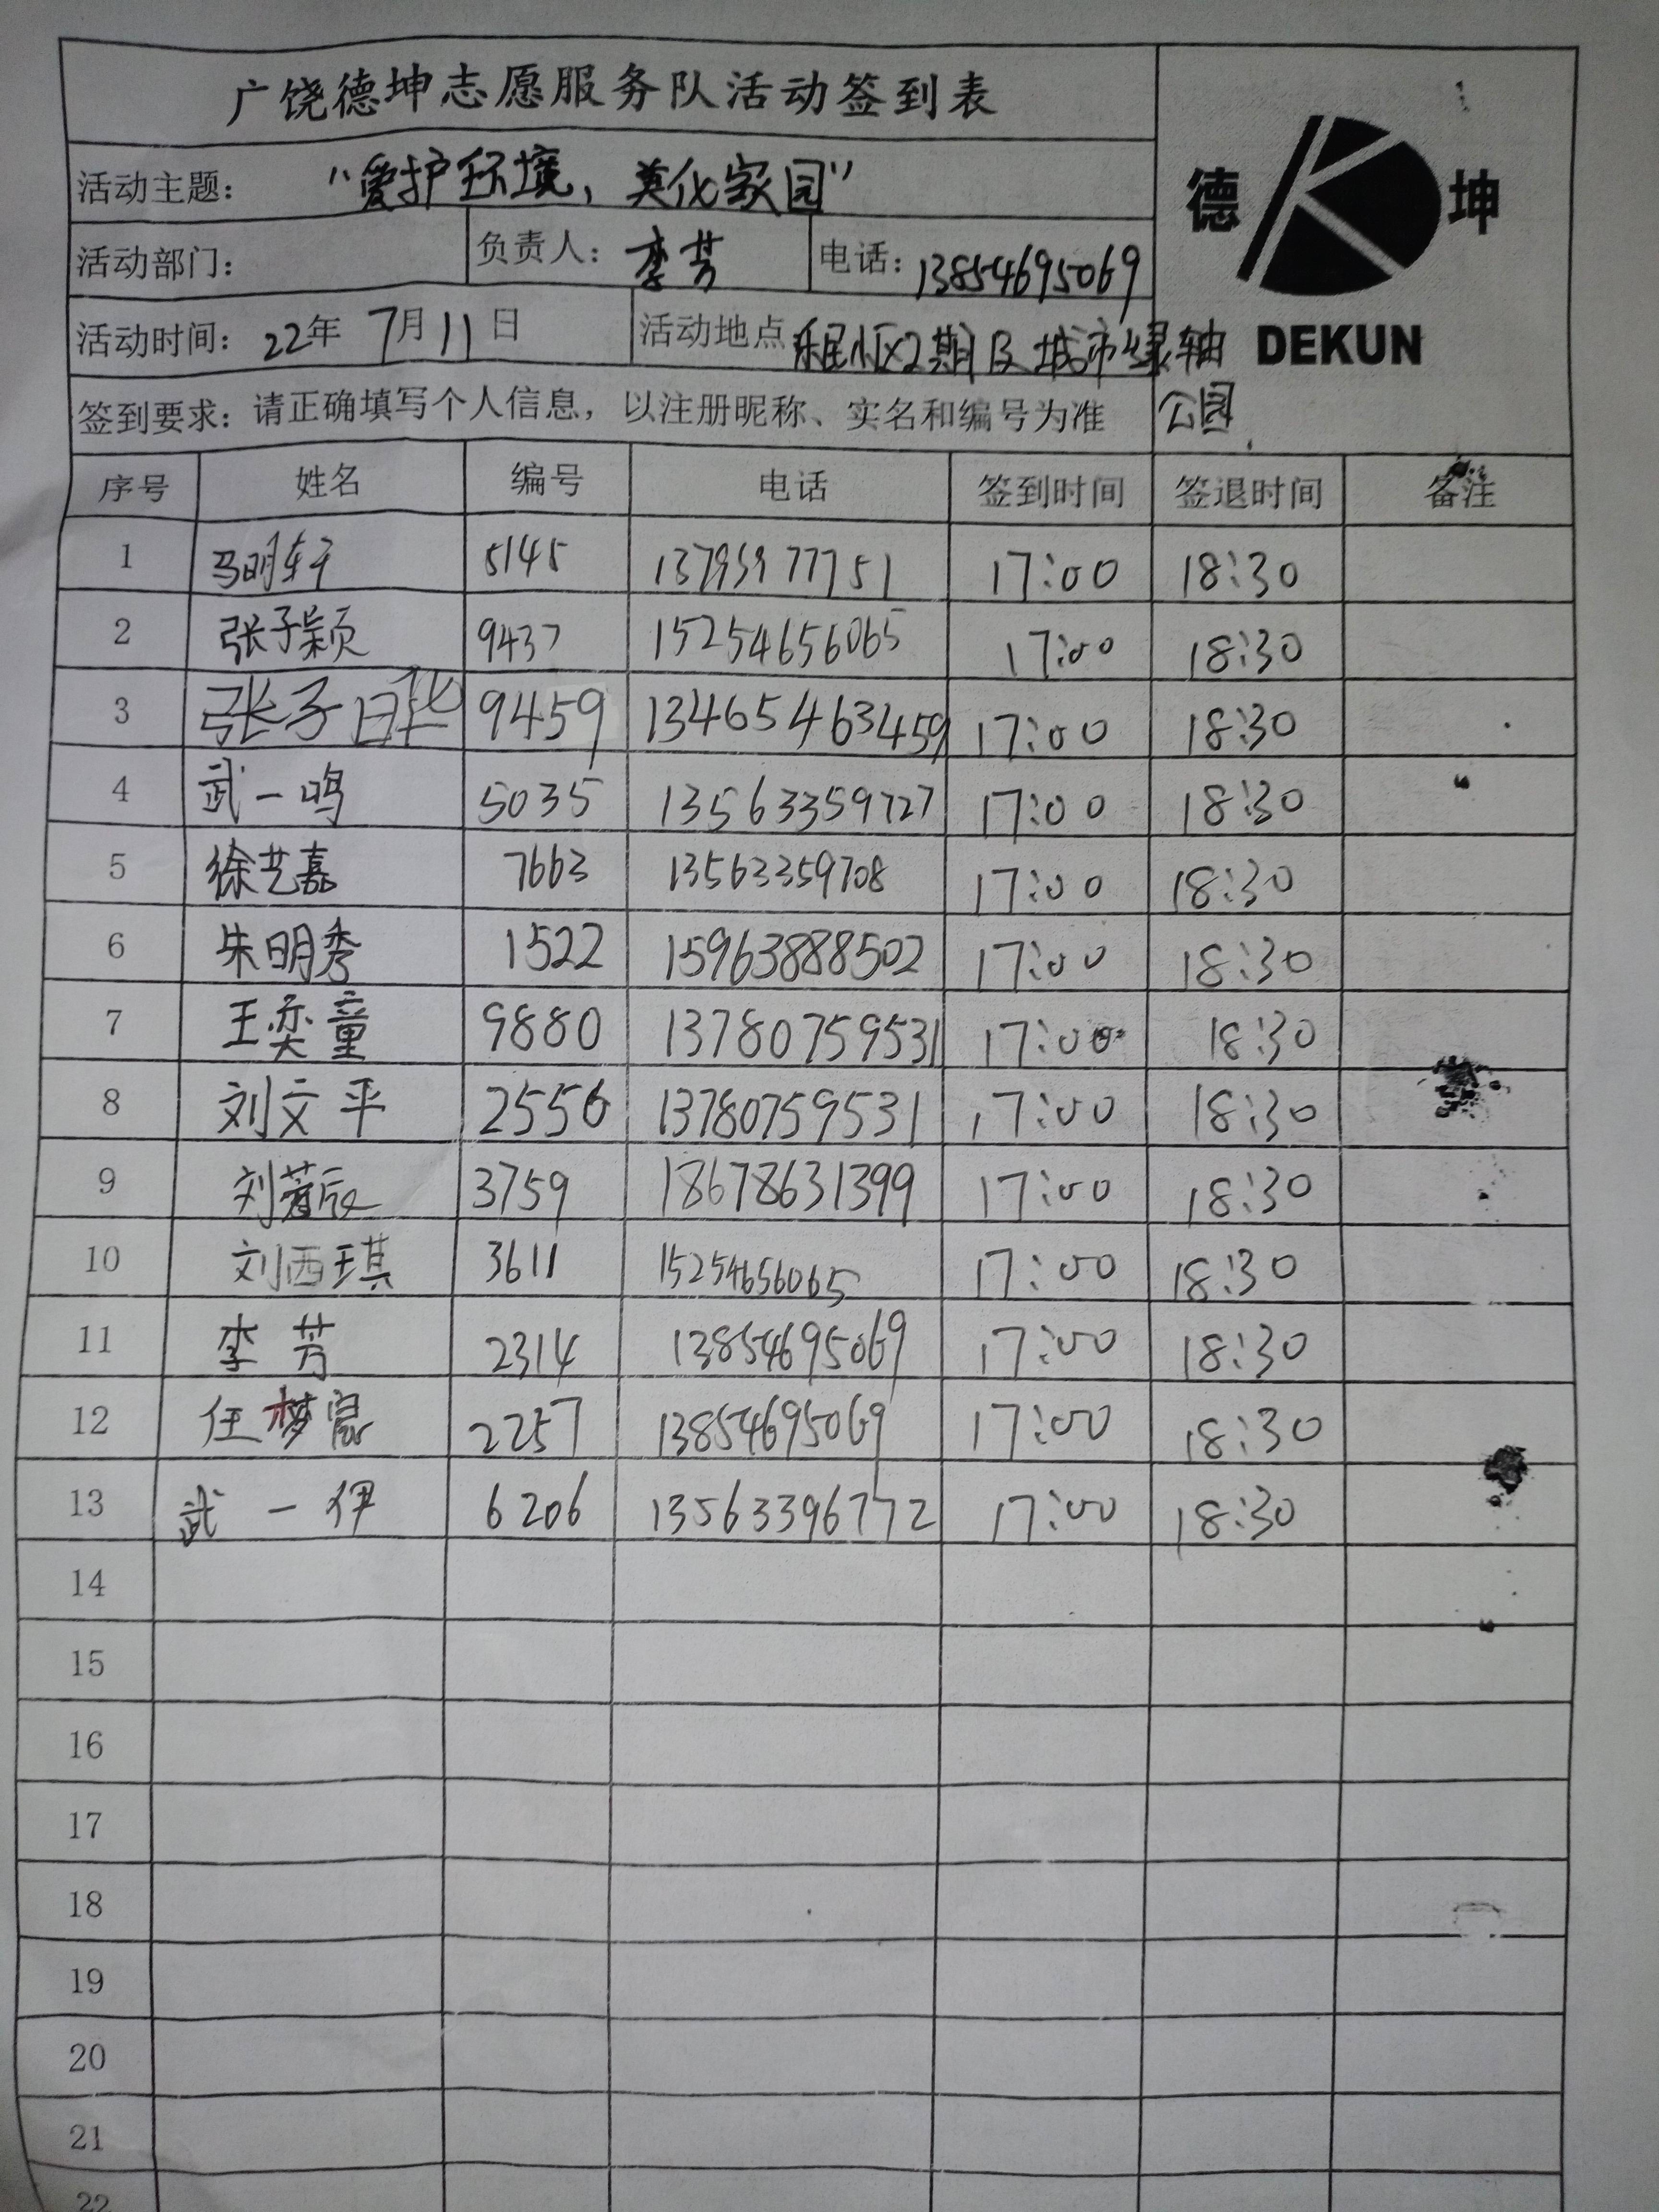 广饶德坤志愿服务队活动签到表
德 坤
DEKUN
活动主题： “爱护环境，美化家园”
活动部门： 负责人： 李芳 电话： 13854695069
活动时间： 22年 7月 11 日 活动地点 乐民小区2期及城市绿轴
公园
签到要求：请正确填写个人信息，以注册昵称、实名和编号为准
序号 姓名 编号 电话 签到时间 签退时间 备注
1 马明轩 5145 13795977751 17:00 18:30
2 张子颖 9437 15254656065 17:00 18:30
3 张子晔 9459 13465463459 17:00 18:30
4 武一鸣 5035 13563359727 17:00 18:30
5 徐艺嘉 7663 13563359708 17:00 18:30
6 朱明秀 1522 15963888502 17:00 18:30
7 王奕童 9880 13780759531 17:00 18:30
8 刘文平 2556 13780759531 17:00 18:30
9 刘 3759 18678631399 17:00 18:30
10 刘西琪 3611 15254656065 17:00 18:30
11 李芳 2314 13854695069 17:00 18:30
12 任梦宸 2257 13854695069 17:00 18:30
13 武一伊 6206 13563396772 17:00 18:30
14
15
16
17
18
19
20
21
22